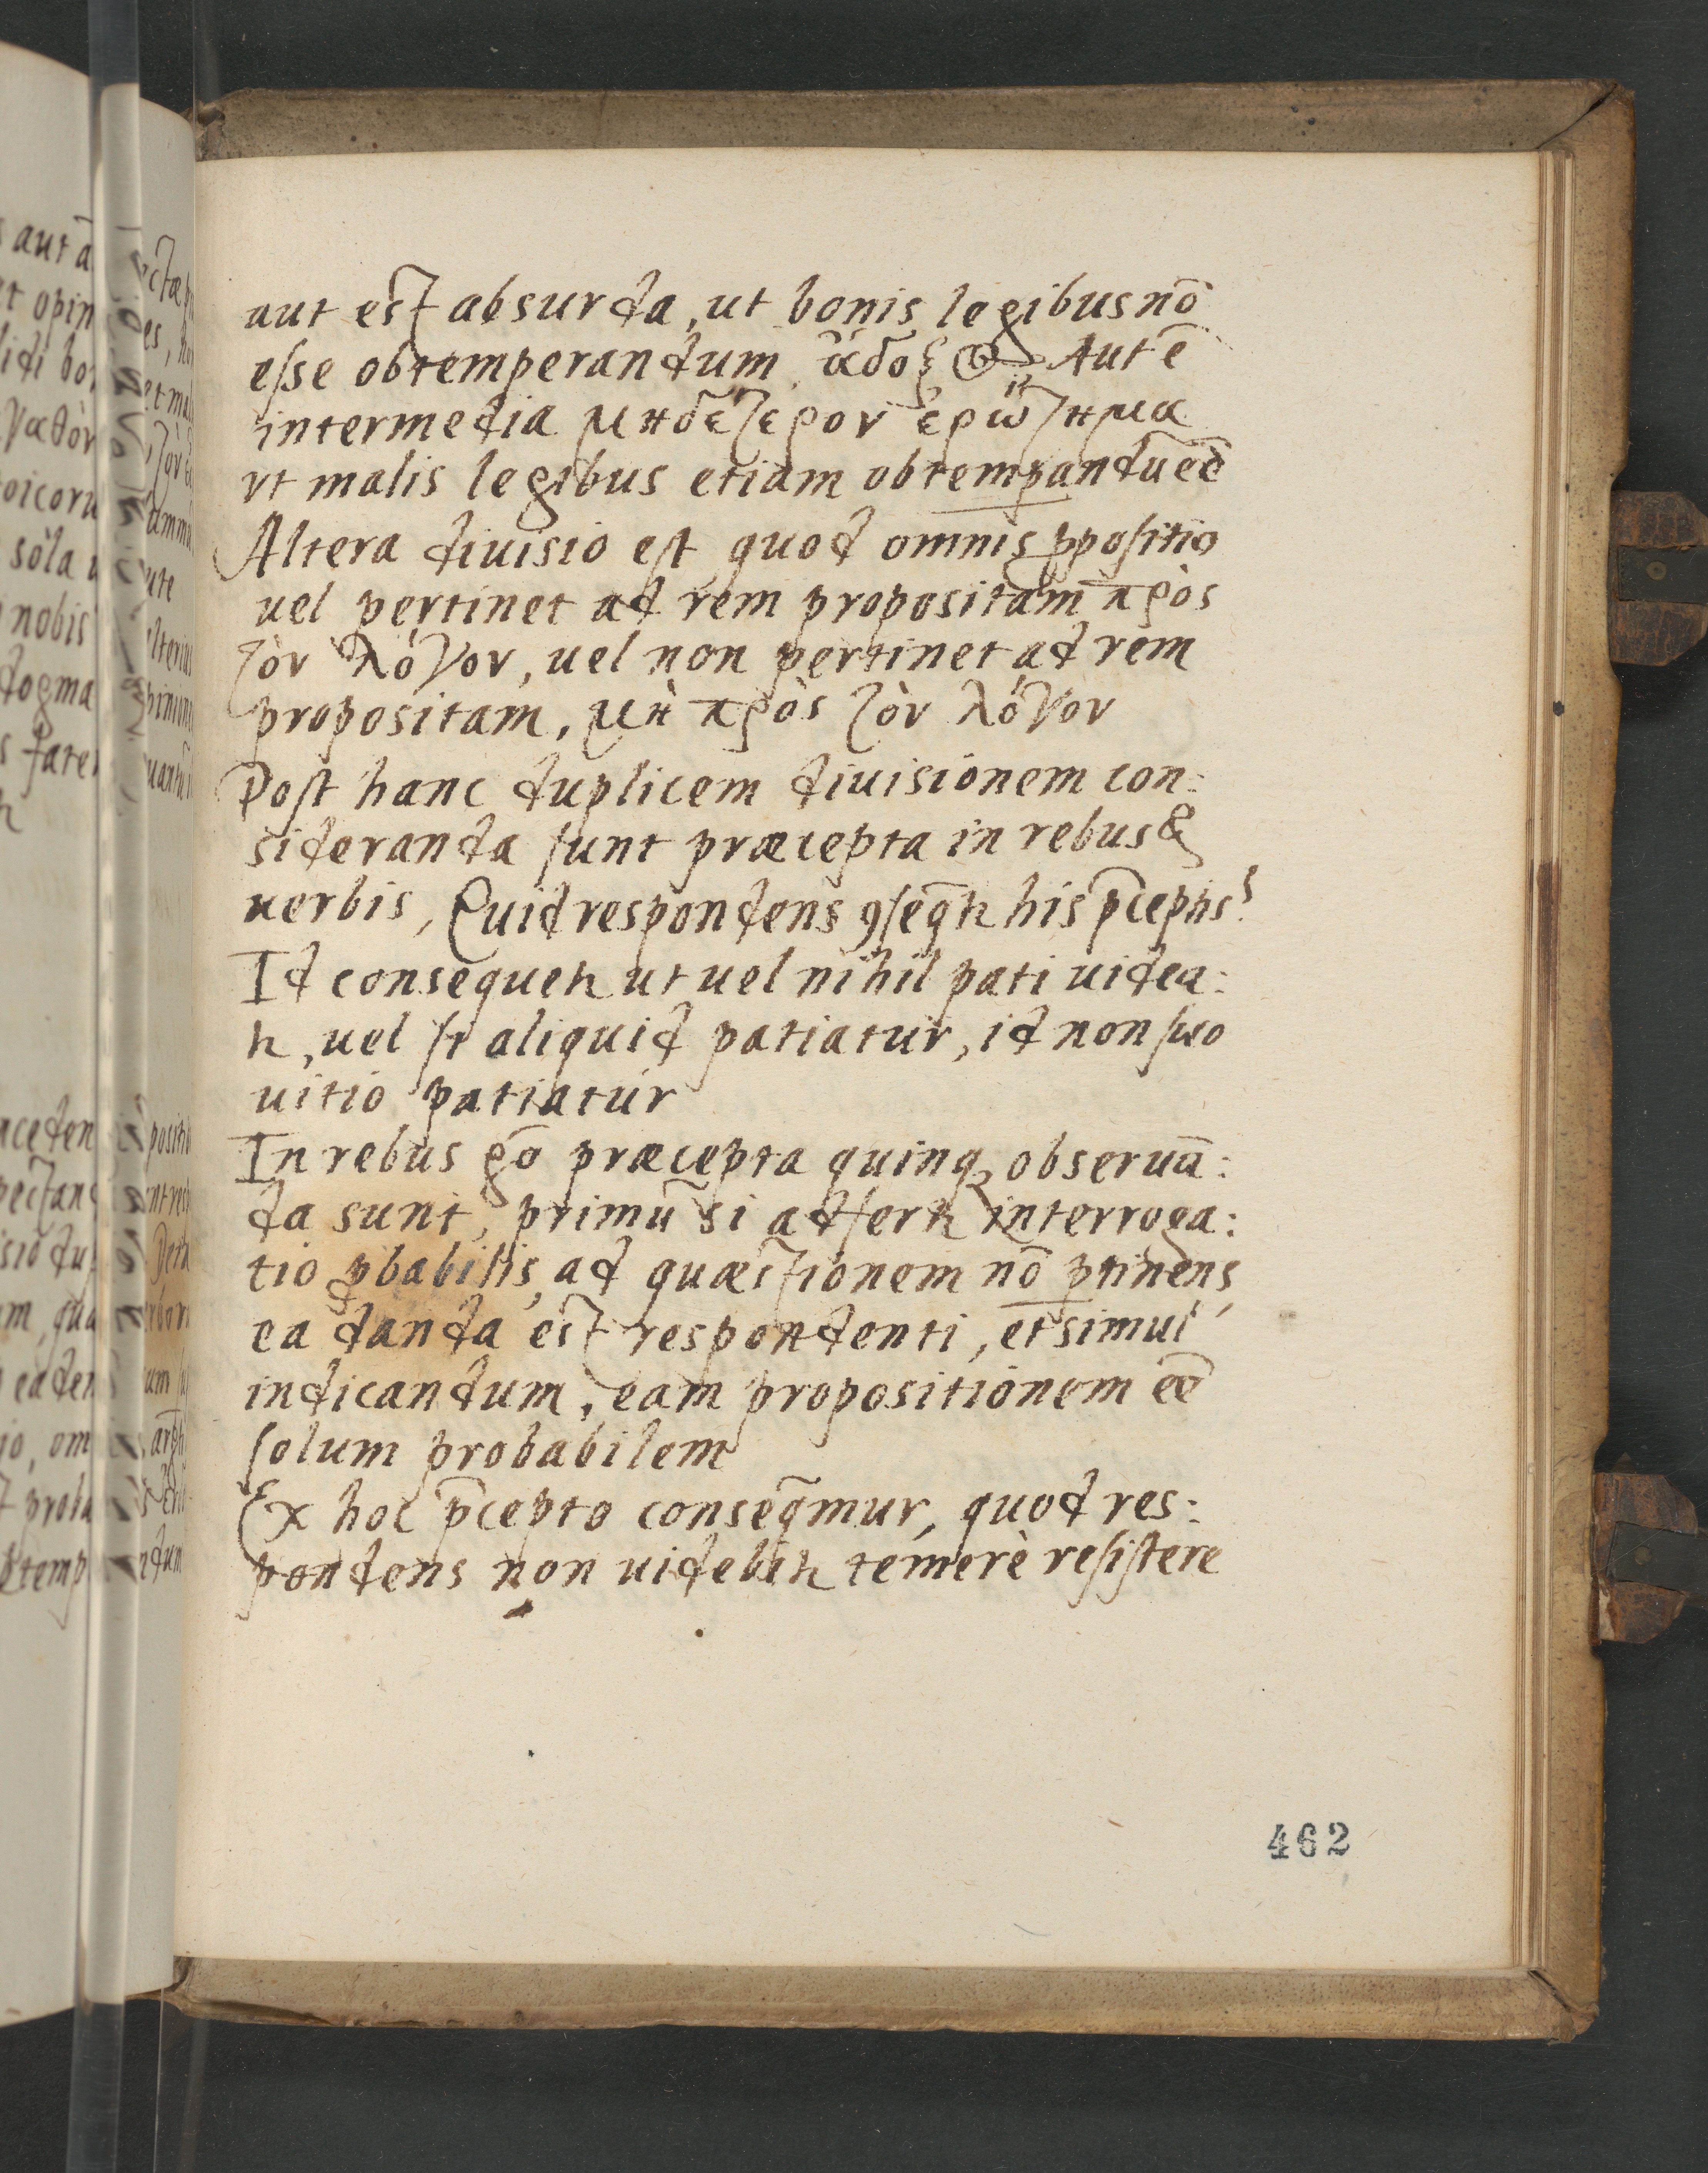 aut est absurda, ut bonis legibus nō
esse obtemperandum. ἄδοξος Aut ē
intermedia μηδέτερον ἐρώτημα
vt malis legibus etiam obtemꝑandū eē
Altera diuisio est quod omnis ꝓpositio
uel pertinet ad rem propositam πρὸς
τὸν λόγον, uel non pertinet ad rem
propositam, μὴ πρὸς τὸν λόγον
Post hanc duplicem diuisionem con:
sideranda sunt præcepta in rebus &
uerbis, Quid respondens ꝯseq̄tr his p̄ceptis?
Id consequetr ut uel nihil pati uidea:
tr, uel si aliquid patiatur, id non suo
uitio patiatur
In rebus gō præcepta quinqꝫ obseruā:
da sunt, primū si adfertr interroga:
tio ꝓbabilis, ad quæstionem nō ꝑtinens,
ea danda est respondenti, et simul
indicandum, eam propositionem eē
solum probabilem
Ex hoc p̄cepto conseq̄mur, quod res:
pondens non uidebitr temerè resistere
462